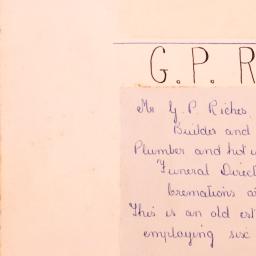 G. P. R
Mr G. P Riches
Builder and
Plumber and hot w
Funeral Direct
Cremations a
This is an old est
employing six